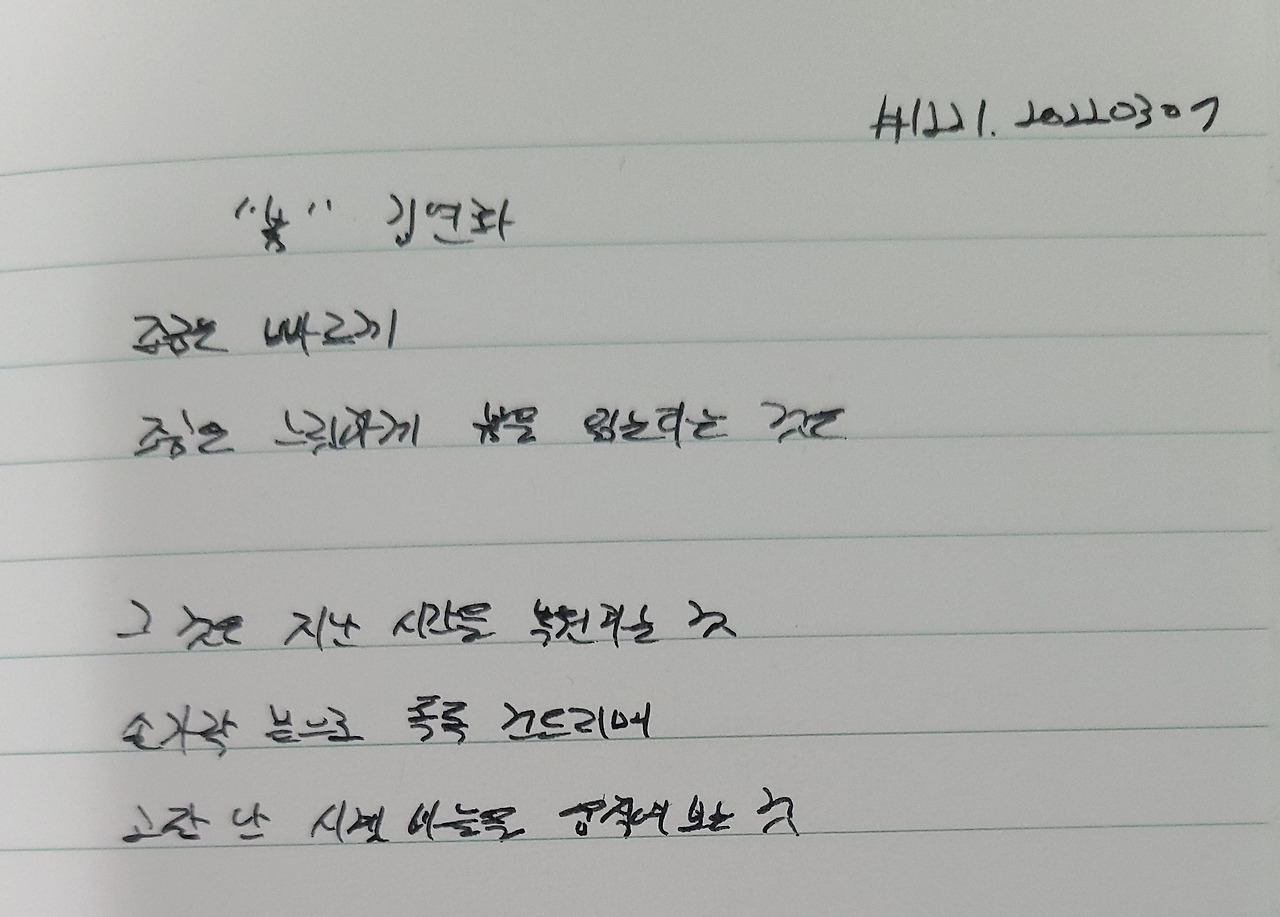 #1221. 20220307
"빛" 김연화
조금은 빠르게
조금은 느릿하게 빛을 읽는다는 것은
그 것은 지난 시간을 복원하는 것
손가락 끝으로 톡톡 건드리며
고장 난 시계 바늘을 움직여 보는 것